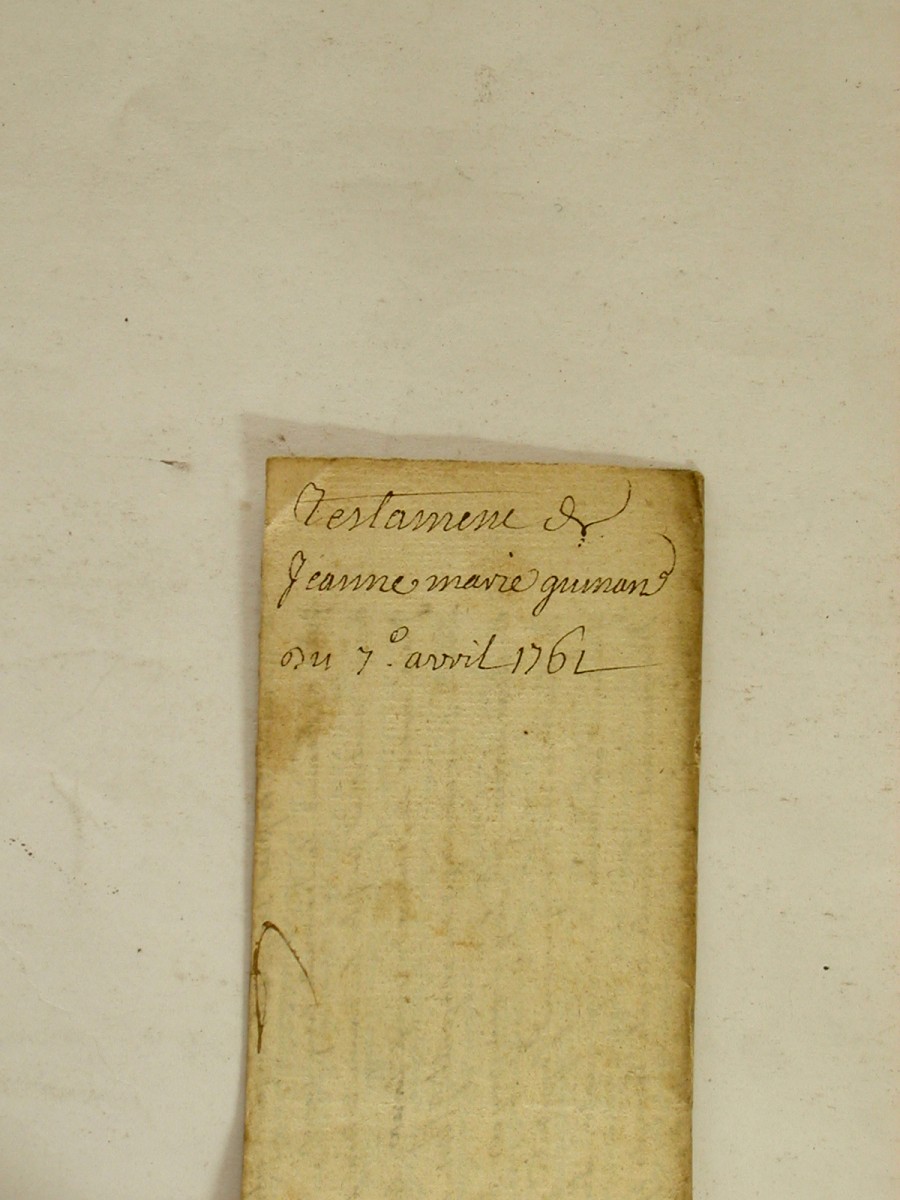 Testament de
Jeanne marie guinand
du 7.e avril 1761